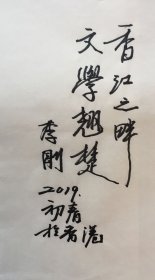 香江之畔
文學翹楚
李剛
2019.
初春
於香港